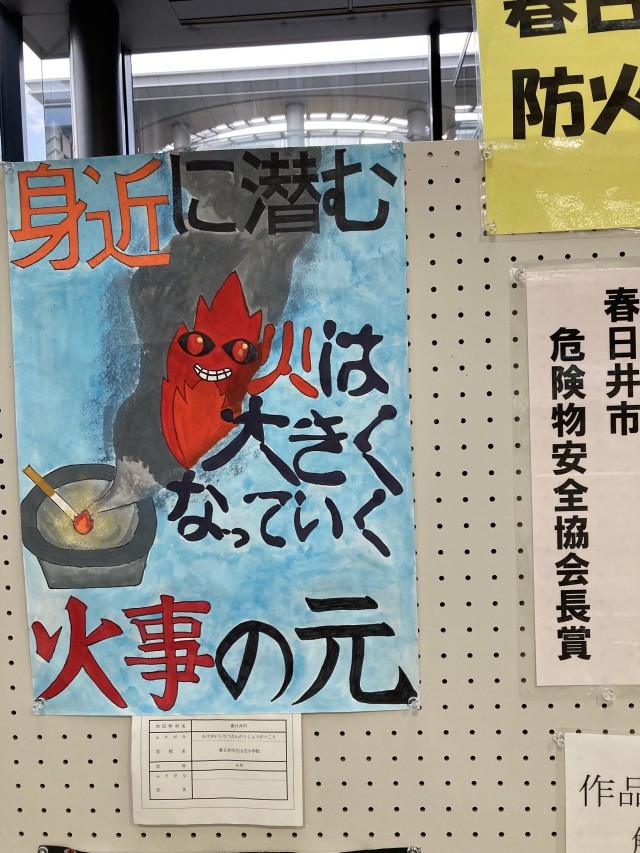 身近に潜む
火は
大きく
なっていく
火事の元
春日
防火
春日井市
危険物安全協会長賞
作品
春日井市
学年
六年